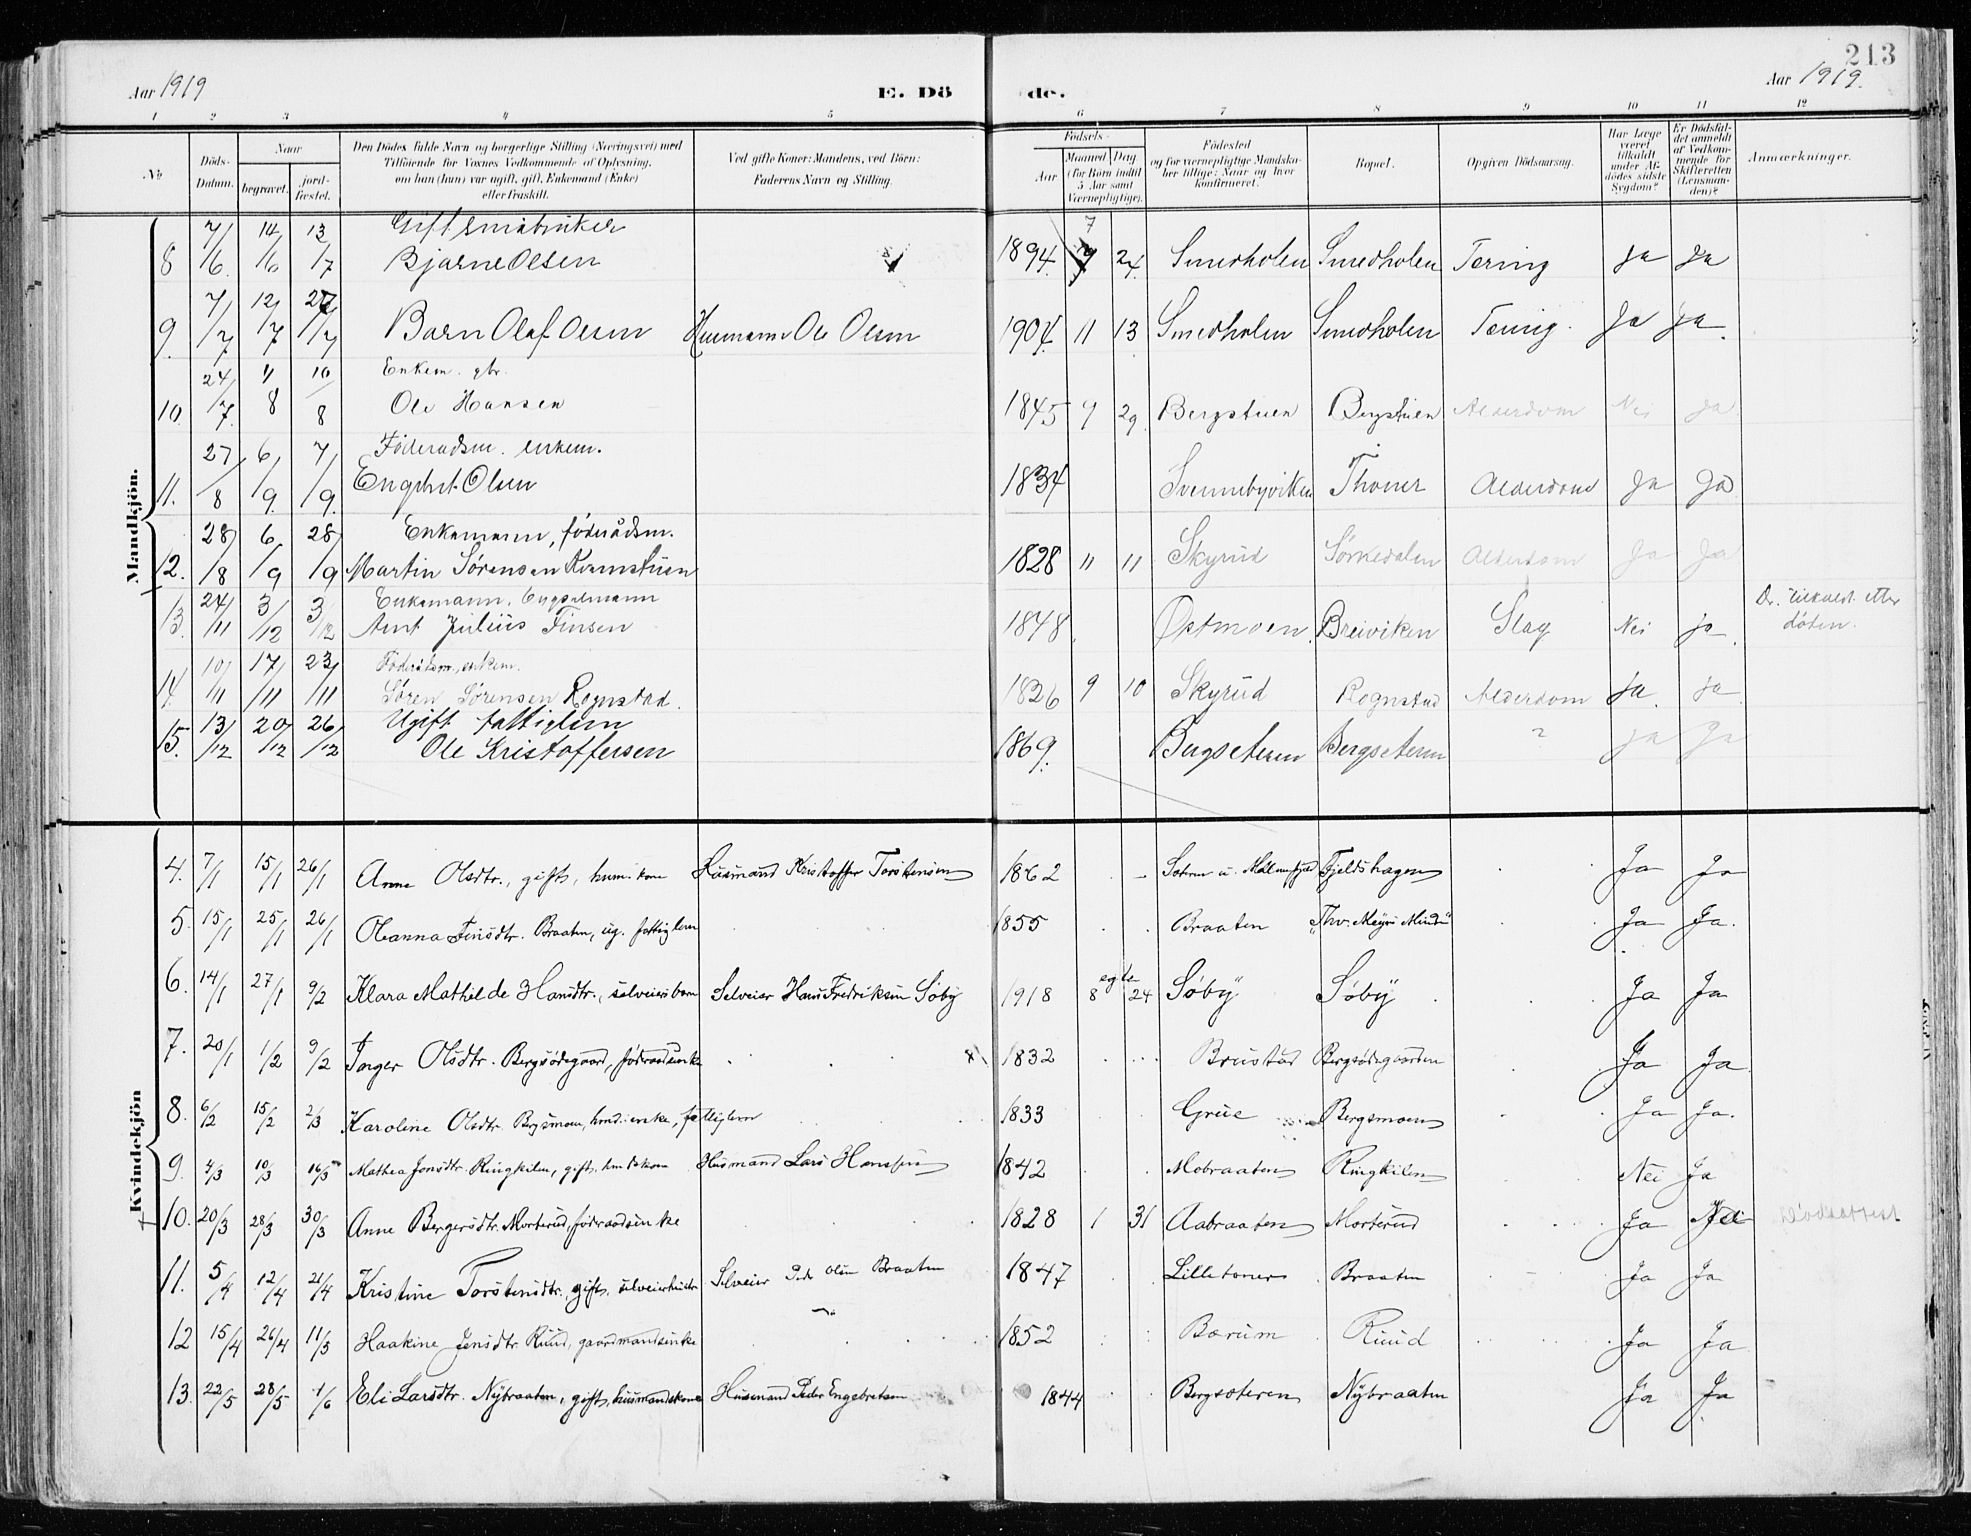 213
Aar 1919 E. Dö de. Aar 1919.
1 2 3 4 5 6 7 8 9 10 11 12
No
Döds-Datum.
Naar
begravet.
jord-fæstet.
Den Dödes fulde Navn og borgerlige Stilling (Næringsvei) med
Tilföiende for Voxnes Vedkommende af Oplysning,
om han (hun) var ugift, gift, Enkemand (Enke)
eller fraskilt.
Ved gifte Koner: Mandens, ved Börn:
Faderens Navn og Stilling.
Födsels-
Aar
Maaned
Dag
(for Börn indtil
5 Aar samt
Værnepligtige).
Födested
og for værnepligtige Mandska-
ber tillige: Naar og hvor
konfirmeret.
Bopæl.
Opgiven Dödsaarsag.
Har Læge
været
tilkaldt
under Af-
dödes sidste
Sygdom?
Er Dödsfal-
det anmeldt
af Vedkom-
mende for
Skifteretten
(Lensman-
den)?
Anmærkninger.
Mandkjön.
Gift småbruker
8 7/6. 14/6 13/7 Bjarne Olsen 1894. 7 24. Smedholen Smedholen Tæring ja ja
9. 7/7 12/7 27/7 Barn Olaf Olsen Husmann Ole Olsen 1904. 11 13 Smedholen Smedholen Tæring. ja ja.
Enkem. gbr.
10 24/7. 11/8 10/8 Ole Hansen 1845 9 29. Bergstuen Bergstuen Alderdom Nei ja
Föderadsm. enkem.
11. 27/8 6/9. 7/9. Engebret Olsen 1834 Svennebyviken Thoner Alderdom Ja Ja
Enkemann, föderådsm.
12. 28/8 6/9 28/9 Martin Sørensen Kvernstuen 1828 11 11 Skyrud Sørkedalen Alderdom Ja Ja
Enkemann.
13. 24/11 3/12 3/12 Arnt Julius Finsen 1848. Østmoen Breiviken Slag Nei ja. Dr. tilkaldt etter
döden.
Föderådsm., enkem.
14. 10/11 17/11 23/11 Søren Sørensen Rognstad. 1826 9 10 Skyrud Rognstad Alderdom ja. ja
Ugift fattiglem
15. 13/12 20/12 26/12 Ole Kristoffersen 1869. Bergseteren Bergseteren ? ja Ja
Kvindekjön
4. 7/1 15/1 26/1 Anne Olsdtr., gift, husm.kone Husmand Kristoffer Torstensen 1862 Fjeldshagen Ja Ja
5. 15/1 25/1 26/1 Olianna Finsdtr. Braaten, ug. fattiglem 1855 Braaten "Thv. Meyers Minde" Ja Ja.
6. 14/1 27/1 9/2 Klara Mathilde Hansdtr., selveiersbarn Selveier Hans Fredriksen Søby 1918 8 egte 24 Søby Søby Ja Ja
7. 20/1 1/2 9/2 Inger Olsdtr. Bergsødegaard, føderaadsenke 1832 Brustad Bergsødegaarden Ja Ja
8. 6/2 15/2 2/3 Karoline Olsdtr. Bergsmoen, hmd.enke, fattiglem 1833 Grue Bergsmoen Ja Ja.
9. 4/3 10/3 16/3 Mathea Jonsdtr. Ringkilen, gift, hmdskone Husmand Lars Hanssen 1842 Mobraaten Ringkilen Nei Ja
10. 20/3 28/3 30/3 Anne Bergersdtr. Morterud, føderaadsenke 1828 1 31 Aabraaten Morterud Ja Nei
11. 5/4 12/4 21/4 Kristine Torstensdtr., gift, selveierhustr. Selveier Peder Olsen Braaten 1847 Lilletoner Braaten Ja Ja
12 15/4 26/4 11/5 Haakine Jensdtr. Ruud, gaardmandsenke 1852 Bærum Ruud Ja Ja
13. 22/5 28/5 1/6 Eli Larsdtr. Nybraaten, gift, husmandskone Husmand Peder Engebretsen 1844 Bergsæteren Nybraaten Ja Ja